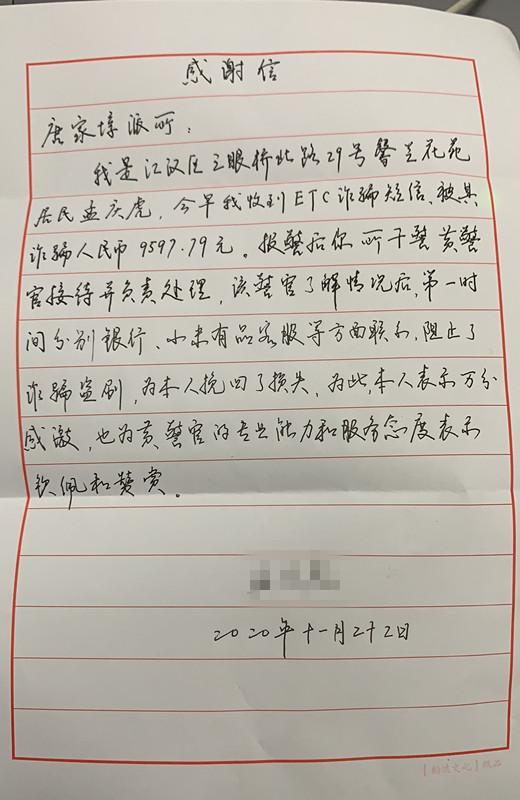 感谢信
唐家墩派所:
我是江汉区三眼桥北路29号馨兰花苑
居民孟庆虎,今早我收到ETC诈骗短信、被其
诈骗人民币9597.79元。报警后你所干警黄警
官接待并负责处理,该警官了解情况后,第一时
间分别银行、小米有品客服等方面联系,阻止了
诈骗盗刷,为本人挽回了损失,为此,本人表示万分
感激,也为黄警官的专业能力和服务态度表示
钦佩和赞赏。
2020年十一月二十2日